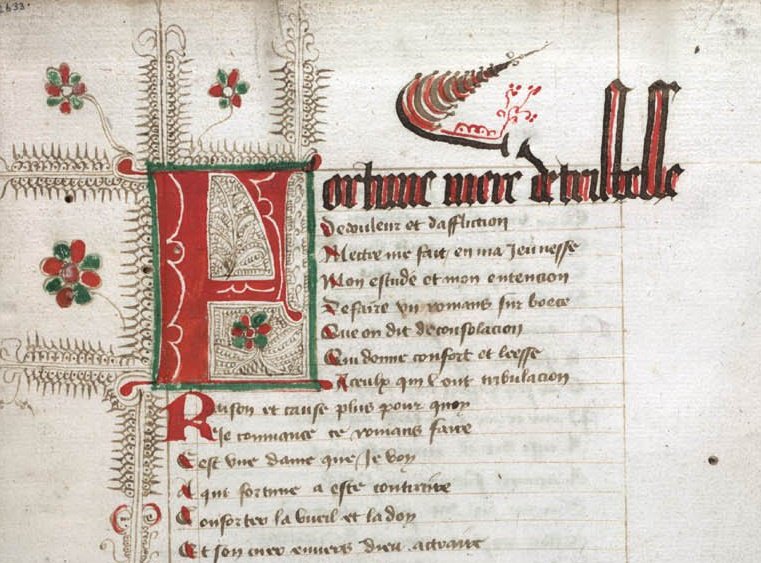 2633.
Fortune mere de tristesse
De douleur et daffliction
Mectre me fait en ma Jeunesse
Mon estude et mon entencion
De faire vn romans sur boece
Que on dit de consolacion
Qui donne confort et leesse
A ceulx qui lont tribulacion
Raison et cause plus pour quoy
Je commance ce romans faire
Cest vne dame que Je voy
A qui fortune a este contraire
Conforter la vueil et la doy
Et son cuer enuers dieu actraire